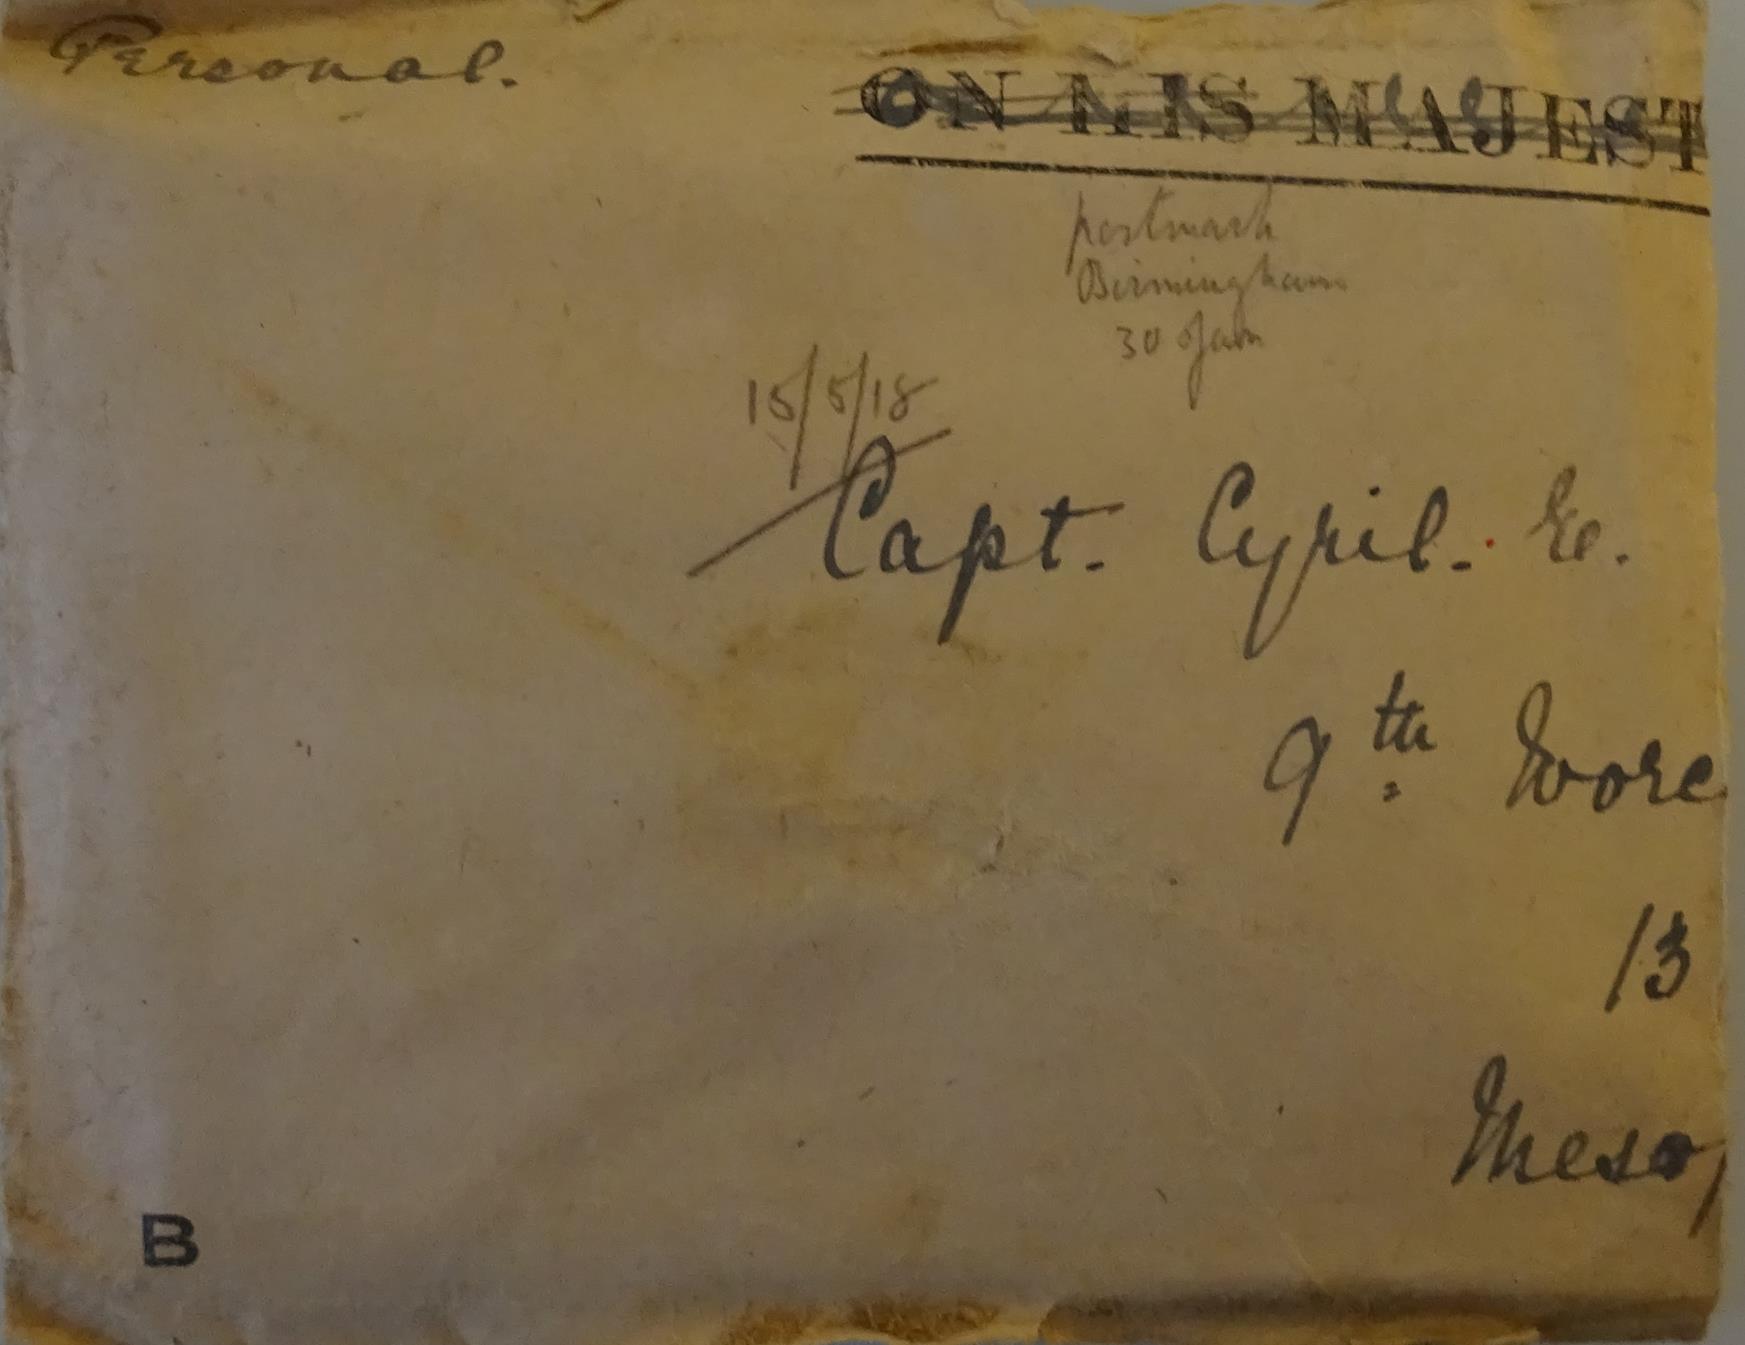 Personal.
ON HIS MAJEST
postmark
Birmingham
30 Jan
15/5/18
Capt. Cyril. E.
9th Worc
13
Mesop
B